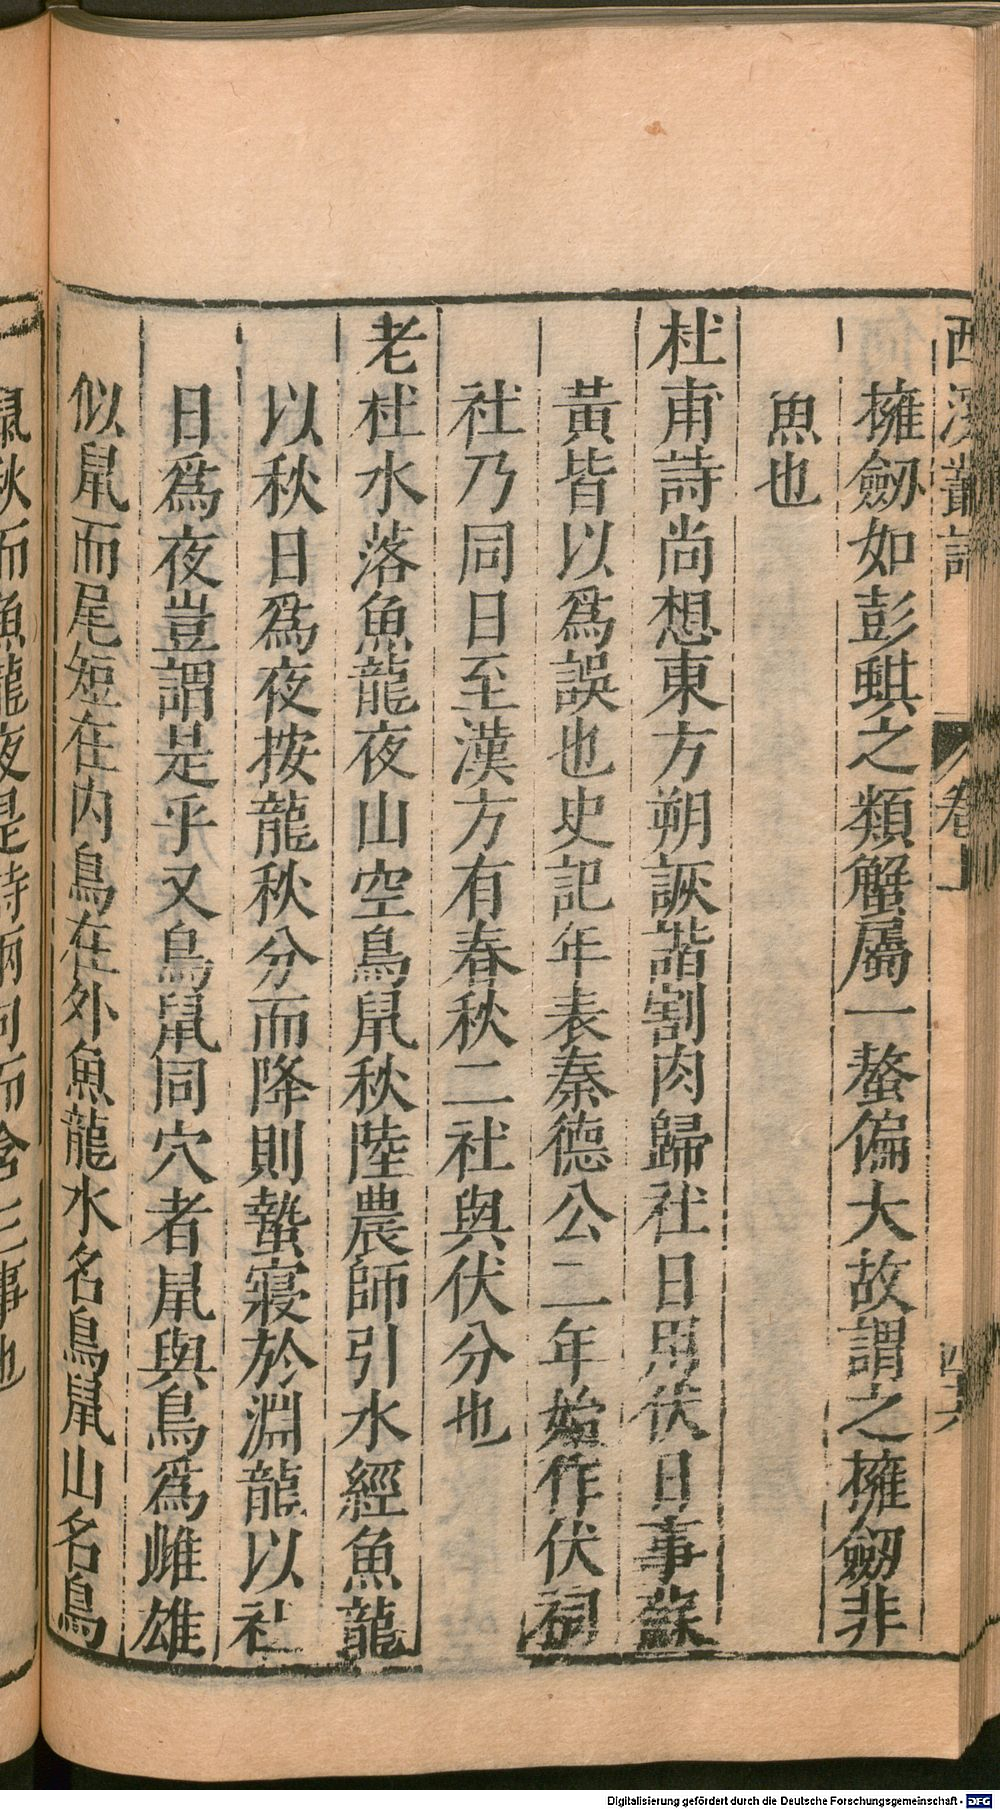 西溪叢語
卷上
擁劔如彭蜞之類蟹屬一螯偏大故謂之擁劔非
魚也
杜甫詩尚想東方朔詼諧割肉歸社日用伏日事蘇
黃皆以爲誤也史記年表秦德公二年始作伏祠
社乃同日至漢方有春秋二社與伏分也
老杜水落魚龍夜山空鳥鼠秋陸農師引水經魚龍
以秋日爲夜按龍秋分而降則蟄寢於淵龍以社
日爲夜豈謂是乎又鳥鼠同穴者鼠與鳥爲雌雄
似鼠而尾短在内鳥在外魚龍水名鳥鼠山名鳥
鼠秋而魚龍夜是詩兩句而含三事也
Digitalisierung gefördert durch die Deutsche Forschungsgemeinschaft - DFG